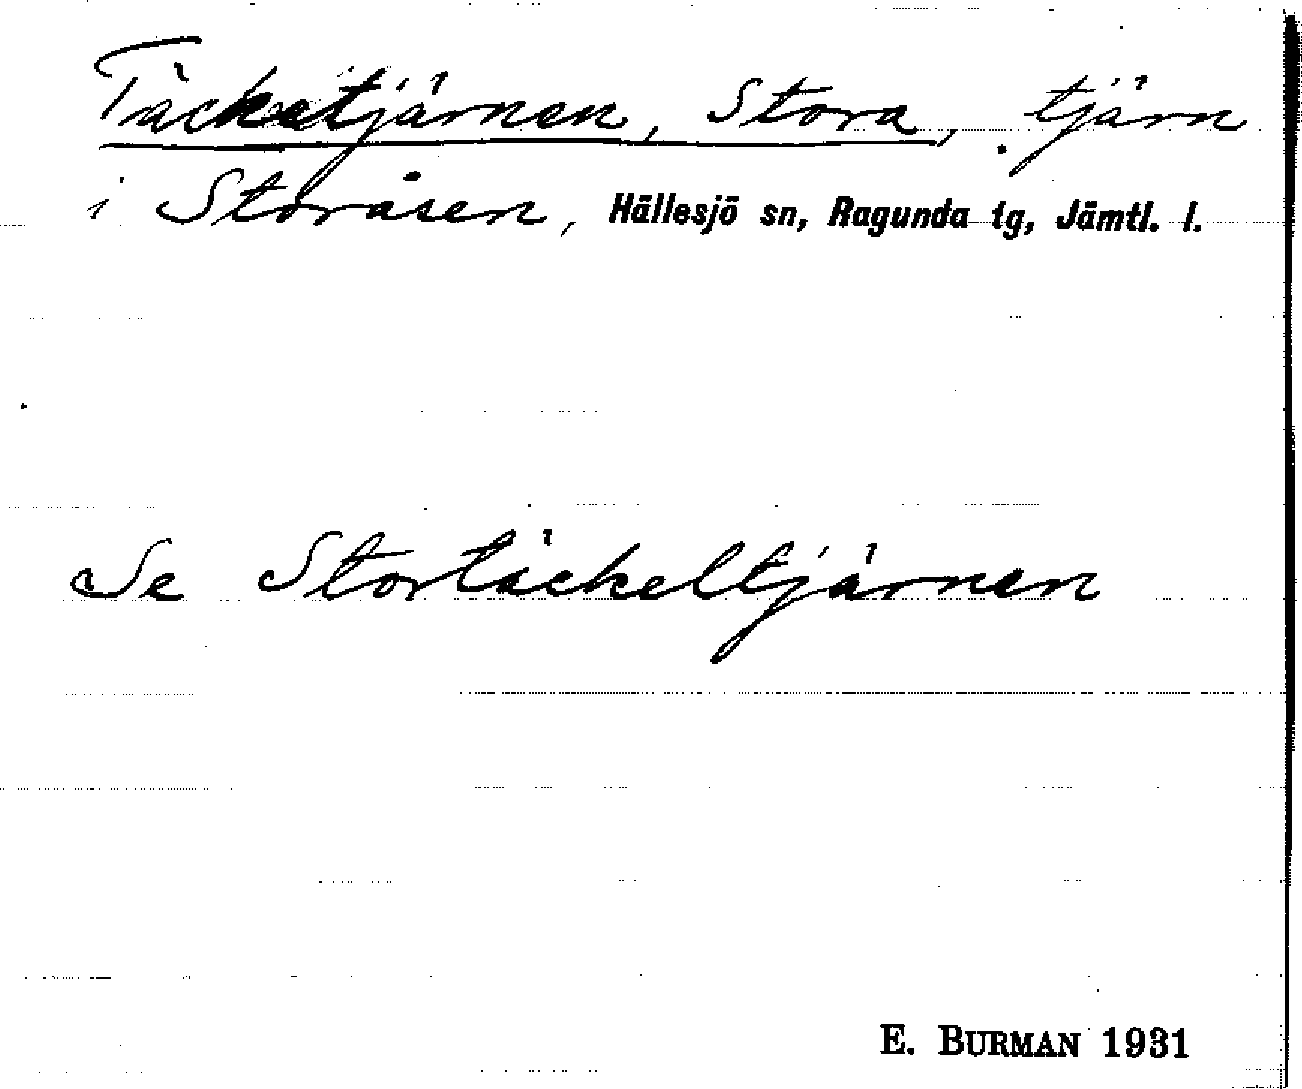 Täckeltjärnen, Stora, tjärn
i Storåsen, Hällesjö sn, Ragunda tg, Jämtl. l.
Se Stortäckeltjärnen
E. BURMAN 1931